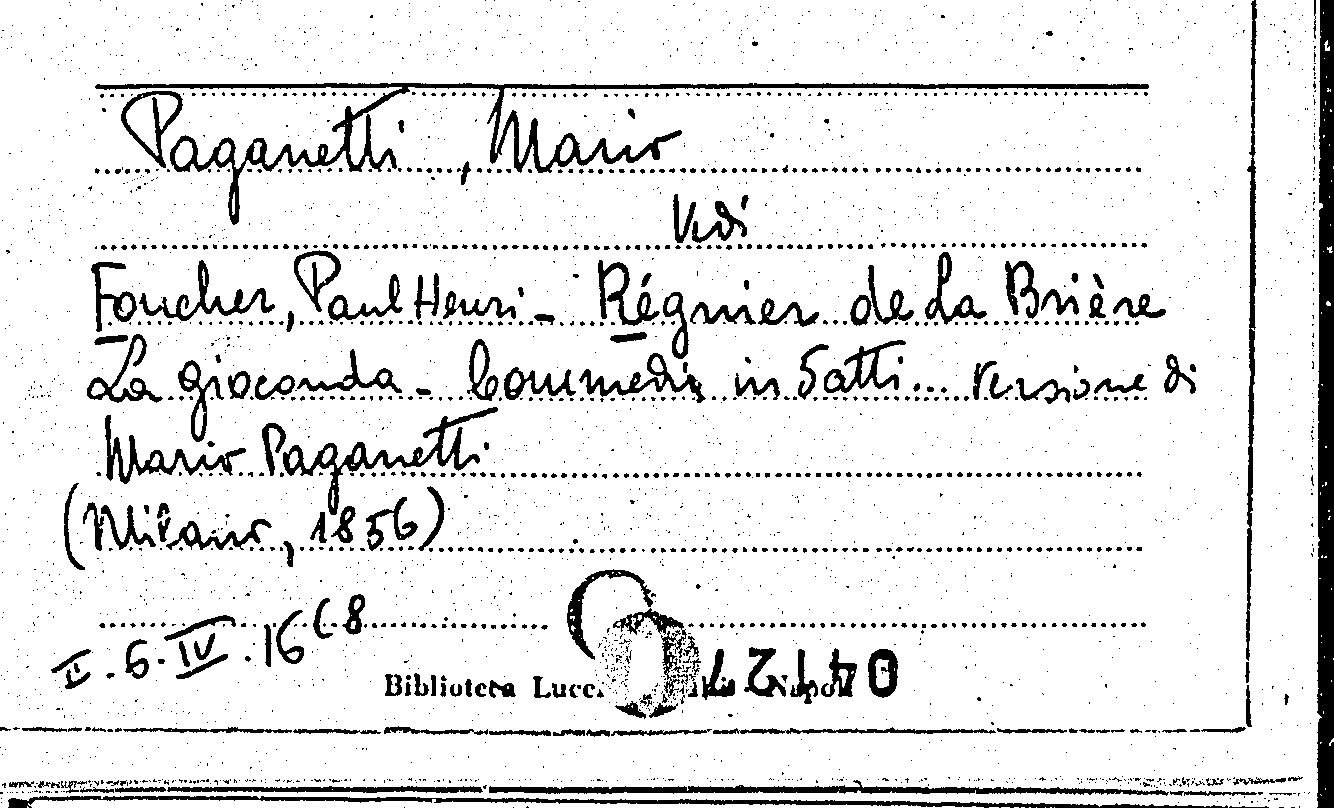 Paganetti, Mario
Vedi
Foucher, Paul Henri - Régnier de La Brière
La gioconda - Commedia in 5 atti... versione di
Mario Paganetti
(Milano, 1856)
II.6.IV.16(8
Biblioteca Napoli
04127